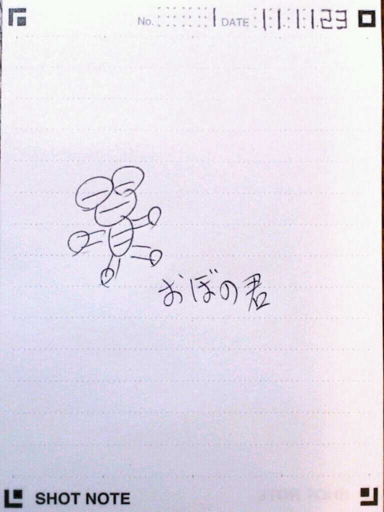 No. 1 DATE 11.11.23
おぼの君
SHOT NOTE